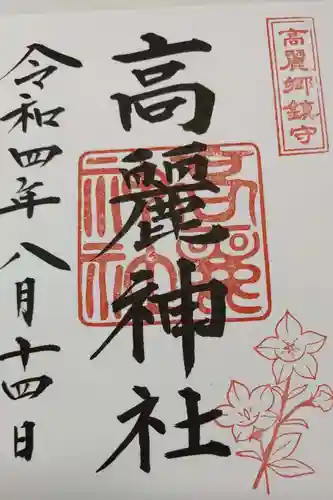 高麗郷鎮守
高麗神社
高麗神社
令和四年八月十四日